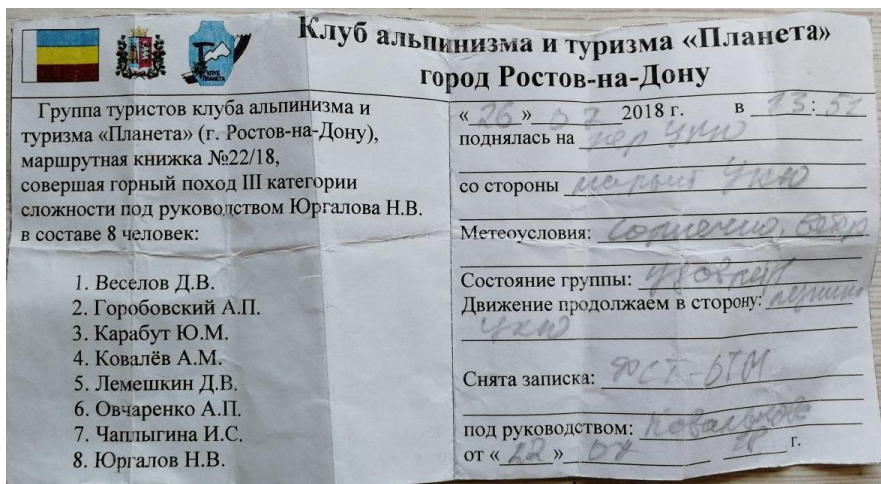 Клуб альпинизма и туризма «Планета»
город Ростов-на-Дону
КЛУБ
ПЛАНЕТА
Группа туристов клуба альпинизма и
туризма «Планета» (г. Ростов-на-Дону),
маршрутная книжка №22/18,
совершая горный поход III категории
сложности под руководством Юргалова Н.В.
в составе 8 человек:
1. Веселов Д.В.
2. Горобовский А.П.
3. Карабут Ю.М.
4. Ковалёв А.М.
5. Лемешкин Д.В.
6. Овчаренко А.П.
7. Чаплыгина И.С.
8. Юргалов Н.В.
« 26 » 07 2018 г. в 13:51
поднялась на пер Укю
со стороны Укю
Метеоусловия: Солнечно, ветер
Состояние группы:
Движение продолжаем в сторону:
Укю
Снята записка:
под руководством:
от « 22 » 07 18 г.